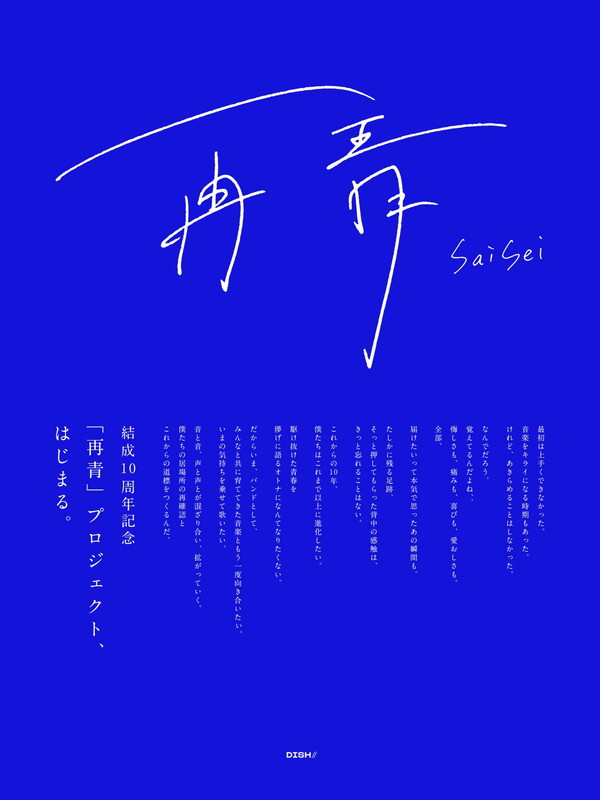 再青
saisei
最初は上手くできなかった。
音楽をキライになる時期もあった。
けれど、あきらめることはしなかった。
なんでだろう。
覚えてるんだよね、
悔しさも、痛みも、喜びも、愛おしさも、
全部。
届けたいって本気で思ったあの瞬間も。
たしかに残る足跡、
そっと押してもらった背中の感触は、
きっと忘れることはない。
これからの10年、
僕たちはこれまで以上に進化したい。
駆け抜けた青春を
儚げに語るオトナになんてなりたくない。
だからいま、バンドとして、
みんなと共に育ててきた音楽ともう一度向き合いたい。
いまの気持ちを乗せて歌いたい。
音と音、声と声とが混ざり合い、拡がっていく。
僕たちの居場所の再確認と
これからの道標をつくるんだ。
結成10周年記念
「再青」プロジェクト、
はじまる。
DISH//